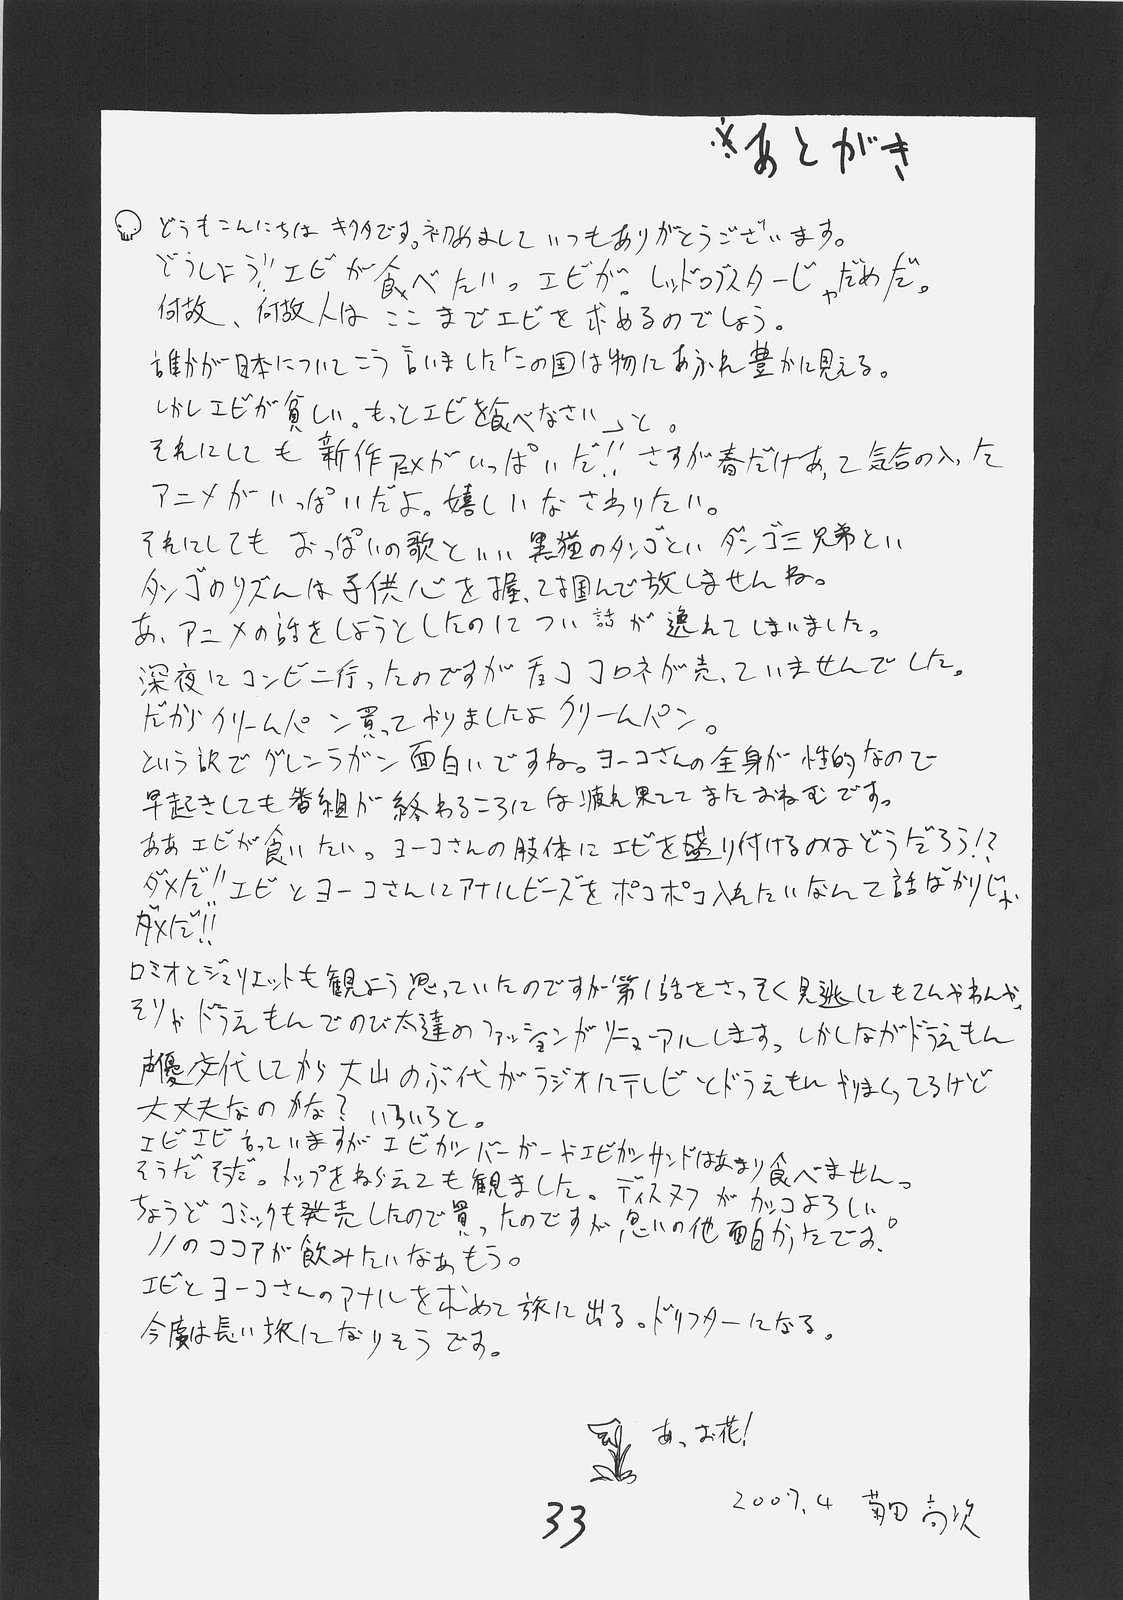 ※あとがき
どうもこんにちは キクタです。初めまして いつもありがとうございます。
どうしよう!! エビが食べたいっ エビが。レッドロブスターじゃだめだ。
何故、何故人は ここまでエビを求めるのでしょう。
誰かが日本についてこう言いました「この国は物にあふれ豊かに見える。
しかしエビが貧しい。もっとエビを食べなさい」と。
それにしても 新作アニメがいっぱいだ!! さすが春だけあって気合の入った
アニメがいっぱいだよ。嬉しいな さわりたい。
それにしても おっぱいの歌といい 黒猫のタンゴといい ダンゴ三兄弟といい
タンゴのリズムは子供心を握って掴んで放しませんね。
あ、アニメの話をしようとしたのに つい話が逸れてしまいました。
深夜にコンビニ行ったのですがチョココロネが売っていませんでした。
だからクリームパン買ってやりましたよ クリームパン。
という訳でグレンラガン面白いですね。ヨーコさんの全身が性的なので
早起きしても番組が終わるころには疲れ果ててまたおねむです。
ああエビが食いたい。ヨーコさんの肢体にエビを盛り付けるのはどうだろう!?
ダメだ!! エビとヨーコさんにアナルビーズをポコポコ入れたいなんて話ばかりじゃ
ダメだ!!
ロミオとジュリエットも観よう思っていたのですが第1話をさっそく見逃してもてんやわんや、
そりゃドラえもんでのび太達のファッションがリニューアルしますっ しかしながドラえもん
声優交代してから大山のぶ代がラジオにテレビとドラえもんやりまくってるけど
大丈夫なのかな? いろいろと。
エビエビ言っていますが エビカツバーガーやエビカツサンドはあまり食べませんっ
そうだそうだ。トップをねらえても観ました。ディスヌフがカッコよろしい
ちょうどコミックも発売したので買ったのですが思いの他面白かったです。
ノノのココアが飲みたいなぁもう。
エビとヨーコさんのアナルを求めて旅に出る。ドリフターになる。
今度は長い旅になりそうです。
あっ、お花!
2007.4 菊田 高次
33